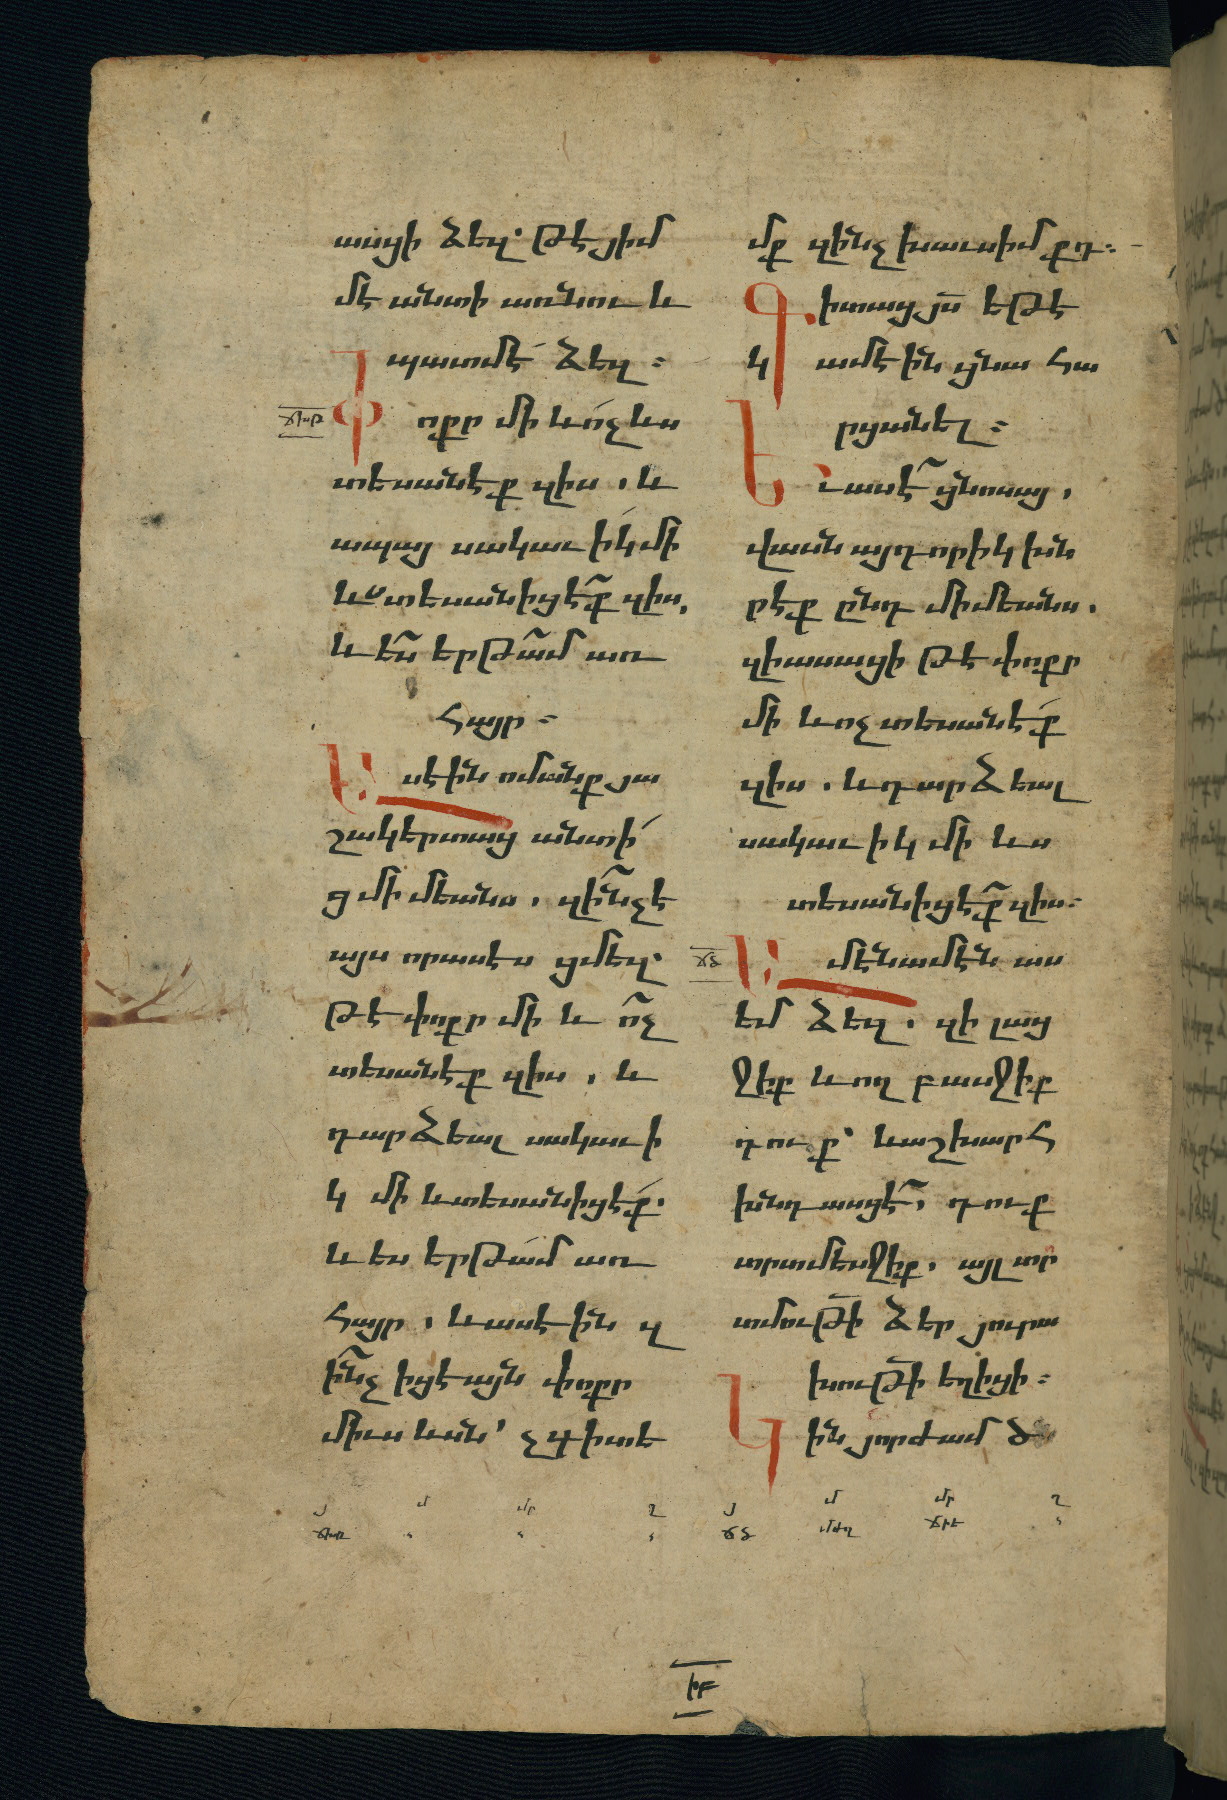 ասցի ձեզ՝ թէ յիմ
մէ անտի առնու և
պատմէ ձեզ ։
ճխթ
Փոքր մի և ոչ ևս
տեսանէք զիս . և
ապայ սակաւիկ մի
ևս տեսանիցէք զիս .
և ես երթամ առ
Հայր ։
Ասէին ոմանք յա
շակերտաց անտի
ց միմեանս . զինչ է
այս որ ասէս ցմեզ՝
թէ փոքր մի և ոչ
տեսանէք զիս . և
դարձեալ սակաւի
կ մի և տեսանիցէք .
և ես երթամ առ
Հայր . և ասէին զ
ինչ իցէ այն փոքր
չգիտե
մք զինչ խաւսիմ քդ ։
Գիտաց յս եթէ
կամէին ցնա հա
րցանել ։
Եւ ասէ ցնոսայ .
վասն այդորիկ խն
րէք ընդ միմեանս .
զի ասացի թէ փոքր
մի և ոչ տեսանէք
զիս . և դարձեալ
սակաւիկ մի ևս
տեսանիցէք զիս ։
ճծ
Ամէն ամէն աս
եմ ձեզ . զի լայ
ջիք և ողբասջիք
դուք՝ և աշխարհ
խնդասցէ , դուք
տրտմեսջիք . այլ տր
տմութի ձեր յուրա
խութի եղիցի ։
Կին յորժամ ծ
յ մ մր ղ յ մ մր ղ
ճծ
իբ